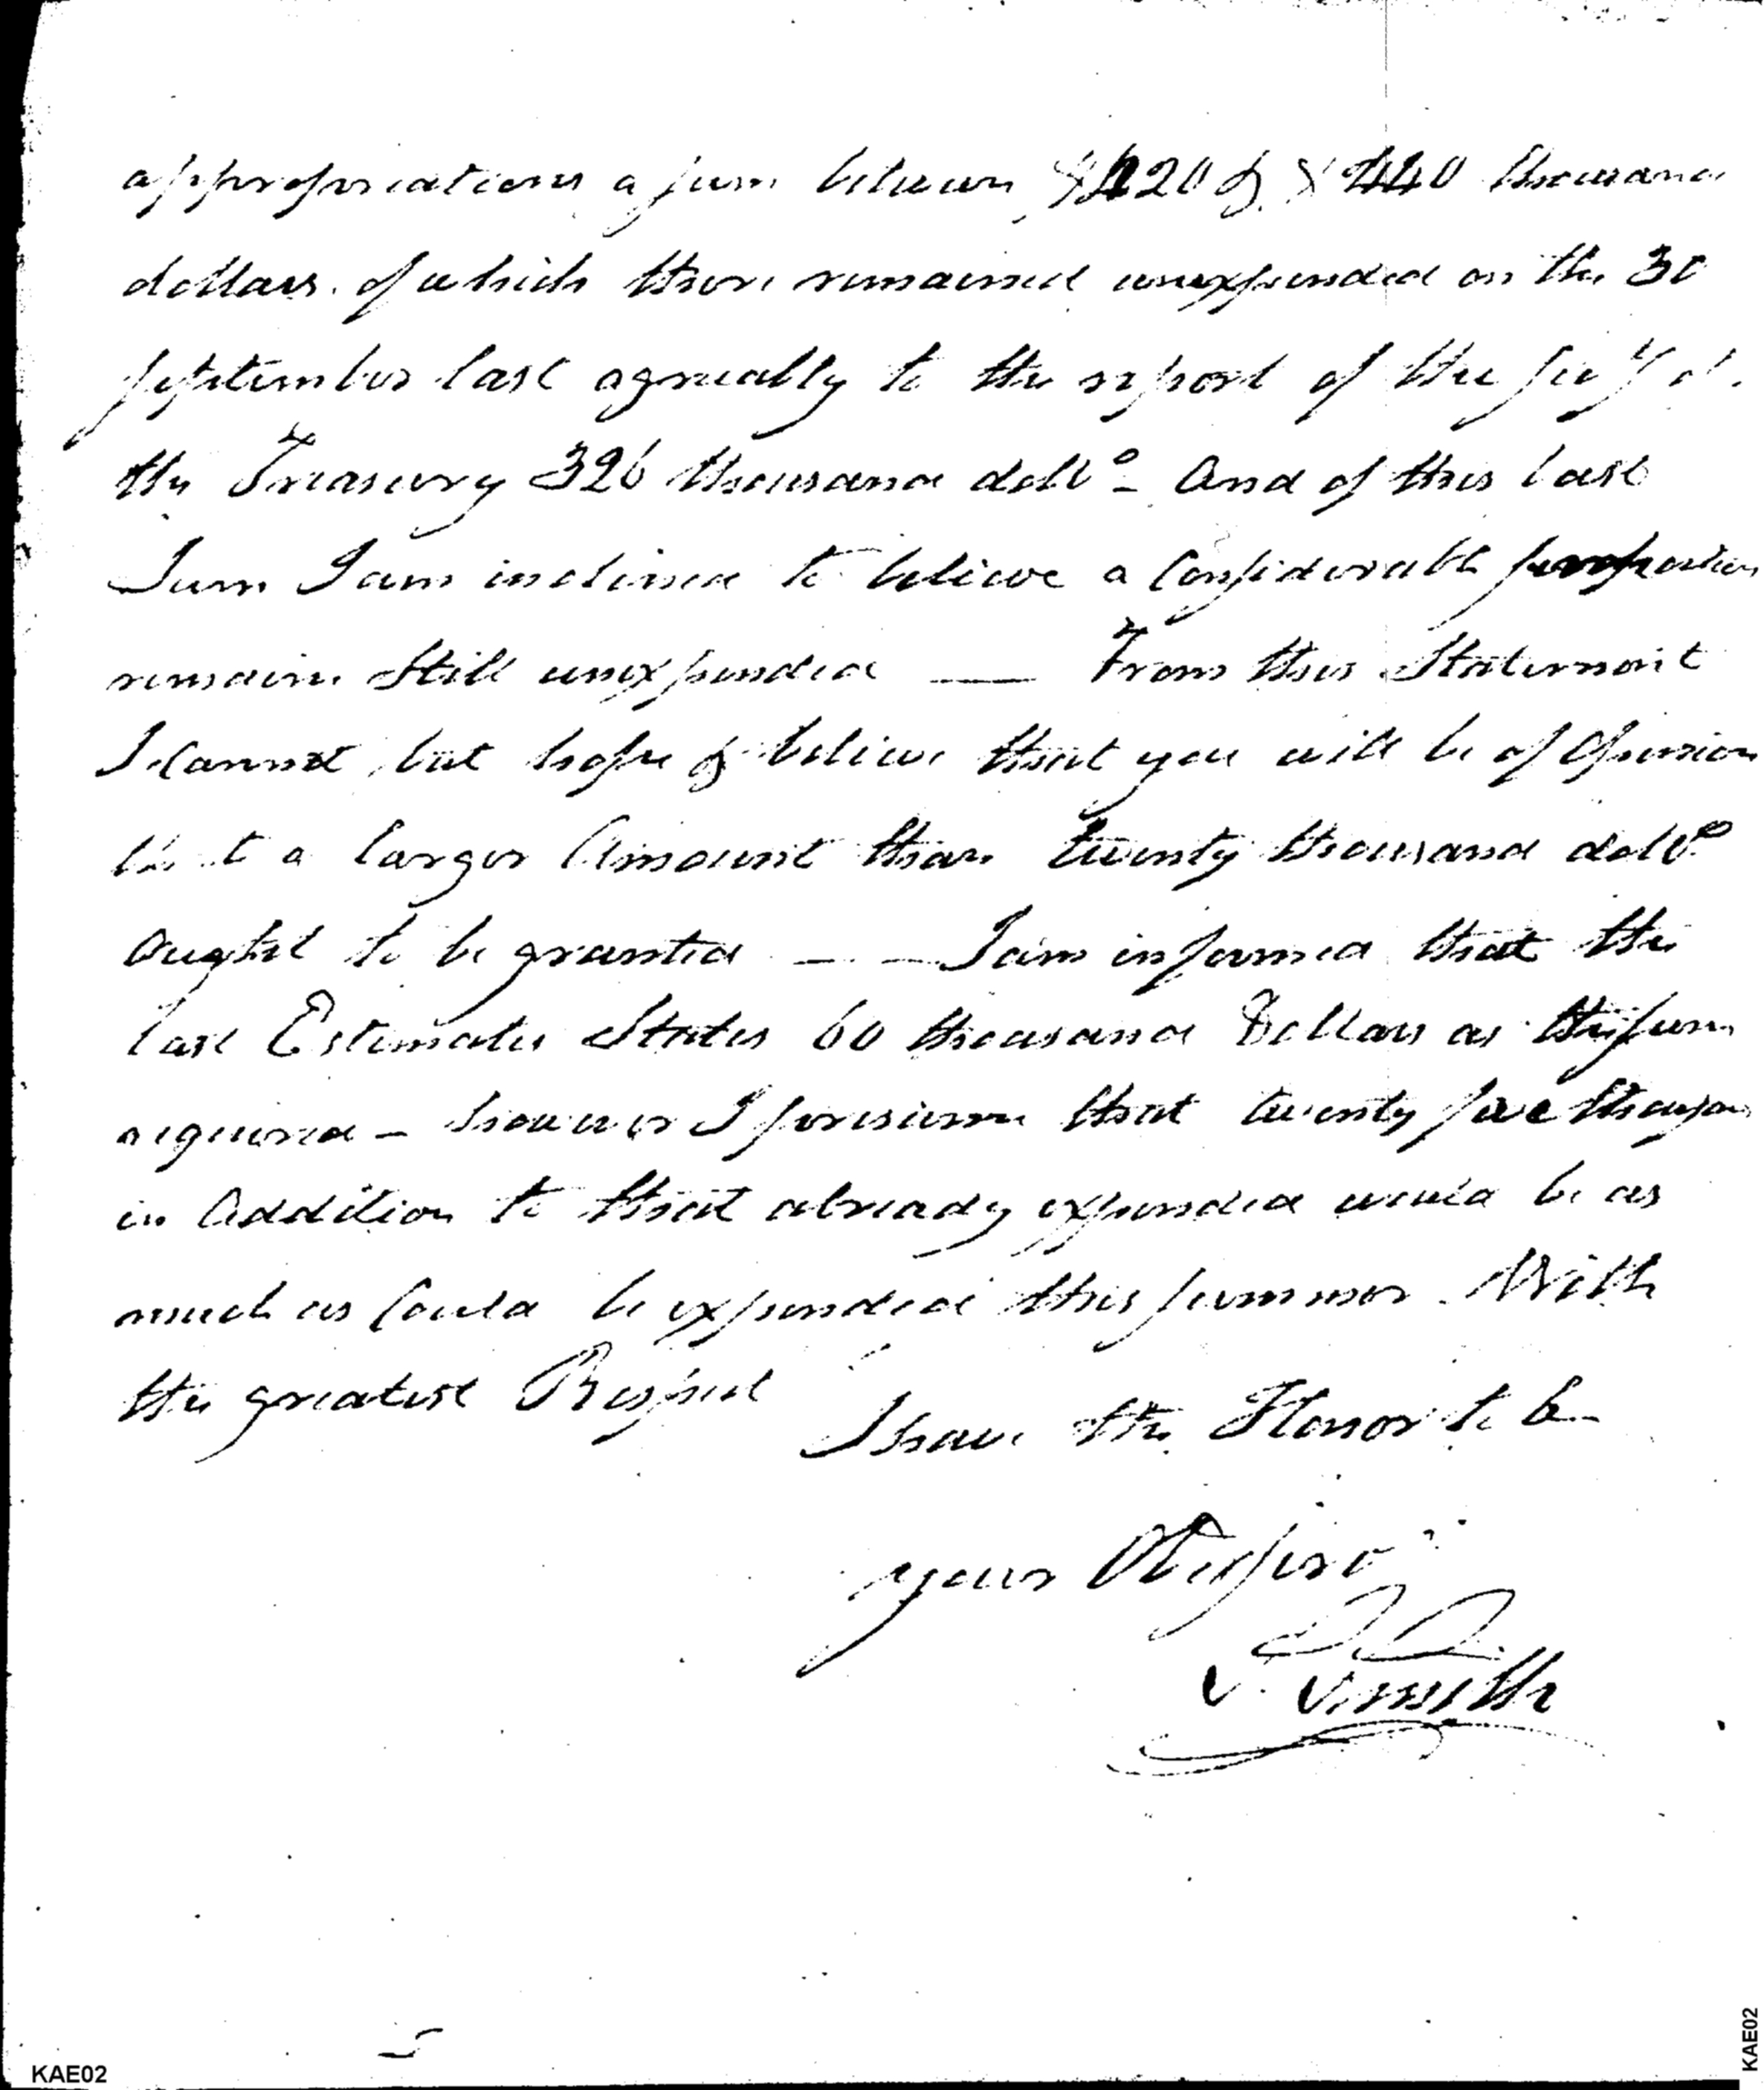 appropriations a sum between $420 & $440 thousand
dollars. of which there remained unexpended on the 30
September last agreeably to the report of the Secy of
the Treasury 326 thousand dollo_ And of this last
Sum I am inclined to believe a Considerable proportion
remains Still unexpended — From this Statement
I Cannot but hope & believe that you will be of Opinion
that a larger Amount than twenty thousand dollo
ought to be granted — — I am informed that the
last Estimates States 60 thousand Dollars as the sum
required – however I presume that twenty five thousan
in Addition to that already expended would be as
much as Could be expended this summer. With
the greatest Respect
I have the Honor to be
your
Smith
KAE02
KAE02